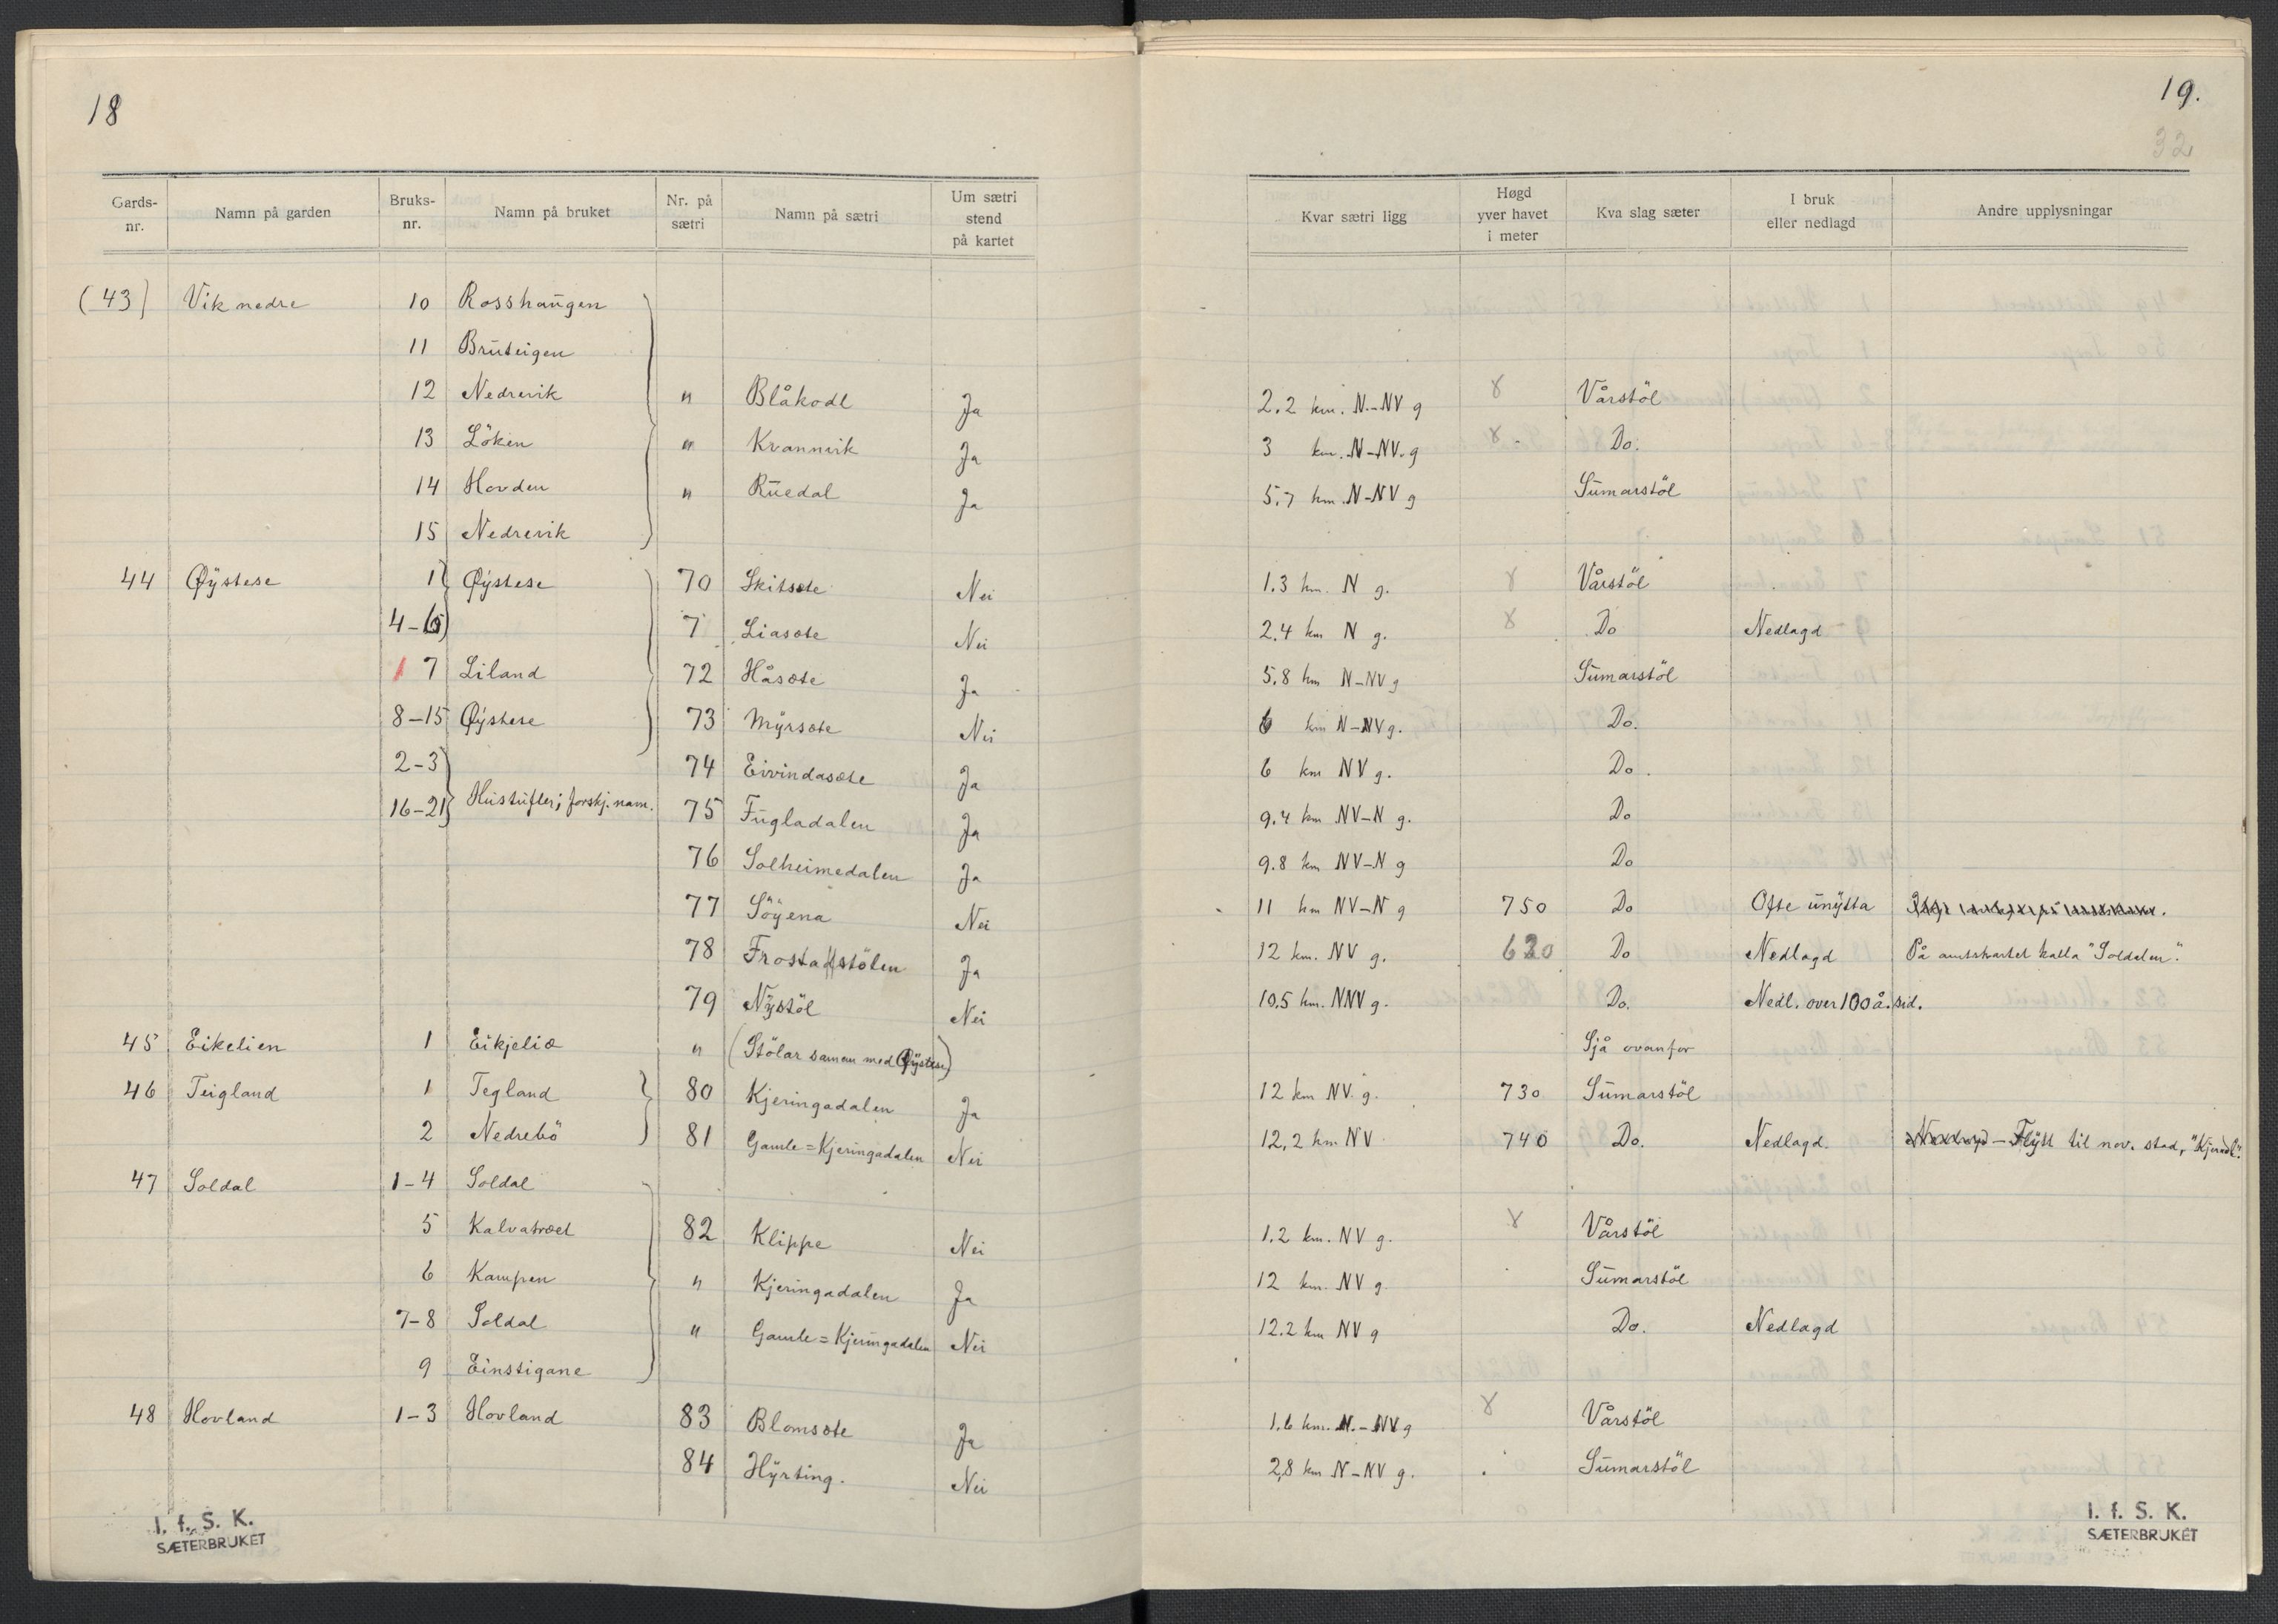 18
Gards-nr. Namn på garden Bruks-nr. Namn på bruket Nr. på sætri Namn på sætri Um sætri stend på kartet
(43) Vik nedre 10 Rosshaŭgen
11 Brŭteigen
12 Nedrevik " Blåkoll Ja
13 Löken " Kvannvik Ja
14 Hovden " Rŭedal Ja
15 Nedrevik
44 Øystese 1 Øystese 70 Skitsete Nei
4-6 7 Liasete Nei
1 7 Liland 72 Håsete Ja
8-15 Øystese 73 Myrsete Nei
2-3 74 Eivindasete Ja
16-21 Hŭstŭfter; forskj. nam. 75 Fŭgladalen Ja
76 Solheimedalen Ja
77 Söyena Nei
78 Frostastölen Ja
79 Nystöl Nei
45 Eikelien 1 Eikjelia " (Stölar saman med Øystese)
46 Teigland 1 Tegland 80 Kjeringadalen Ja
2 Nedrebö 81 Gamle=Kjeringadalen Nei
47 Soldal 1-4 Soldal
5 Kalvatræet 82 Klippe Nei
6 Kampen " Kjeringadalen Ja
7-8 Soldal " Gamle=Kjeringadalen Nei
9 Einstigane
48 Hovland 1-3 Hovland 83 Blomsete Ja
84 Hyrting. Nei
I. f. S. K.
SÆTERBRUKET
19.
32
Kvar sætri ligg Høgd yver havet i meter Kva slag sæter I bruk eller nedlagd Andre upplysningar
2.2 km. N.-NV g Vårstöl
3 km. N-NV. g Do.
5.7 km. N-NV g Sŭmarstöl
1.3 km. N g. Vårstöl
2.4 km N g. Do Nedlagd
5.8 km N-NV g Sŭmarstöl
6 km N-NV g. Do.
6 km NV g. Do.
9.4 km NV-N g. Do
9.8 km NV-N g Do
11 km NV-N g 750 Do Ofte ŭnytta
12 km. NV g. 620 Do Nedlagd På amtskartet kalla "Soldalen".
10.5 km. NNV g. Do. Nedl. over 100 å. sid.
Sjå ovanfor
12 km NV. g. 730 Sŭmarstöl
12,2 km NV 740 Do. Nedlagd. - Flytt til nov. stad,
1.2 km. NV g. Vårstöl
12 km. NV g. Sŭmarstöl
12.2 km NV g Do. Nedlagd
1.6 km. N.-NV g Vårstöl
2,8 km N-NV g. Sŭmarstöl
I. f. S. K.
SÆTERBRUKET